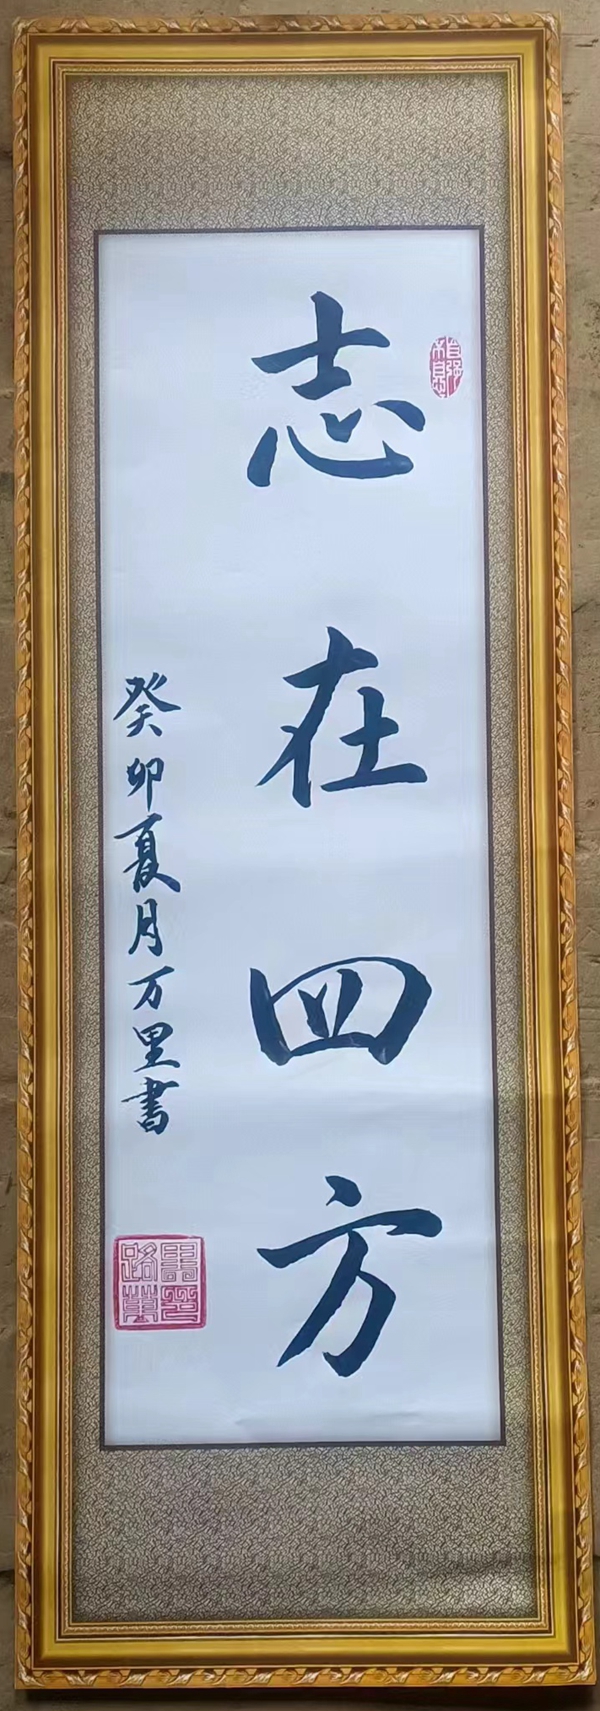 志在四方
癸卯夏月万里書